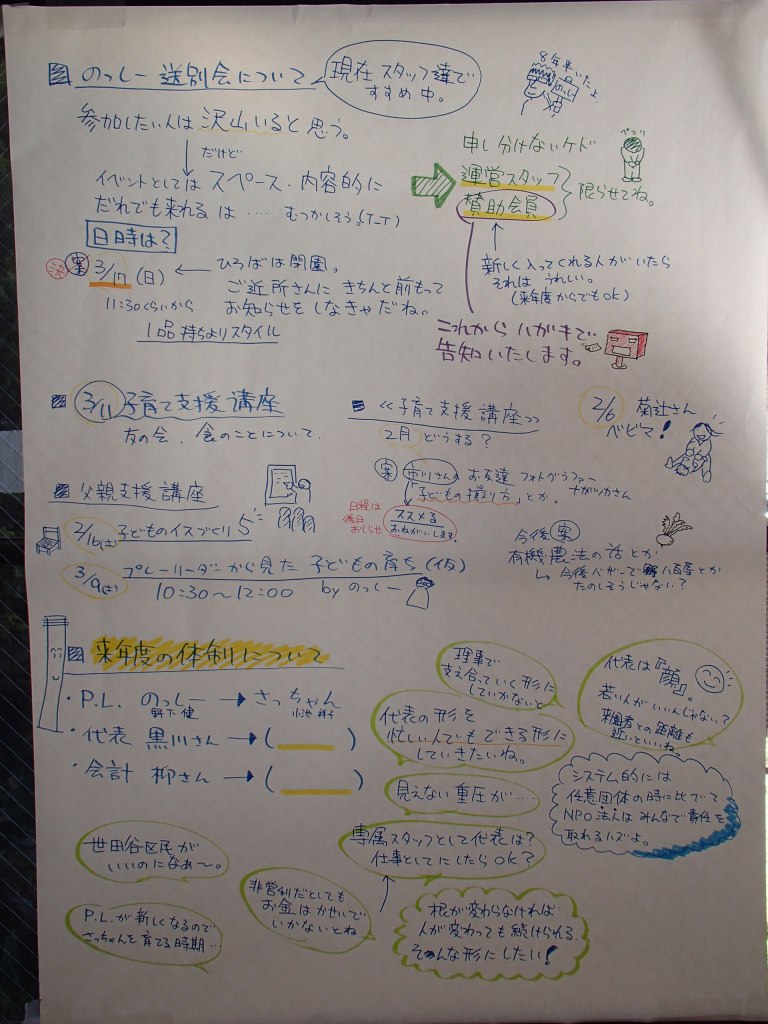 のっしー送別会について
現在スタッフ達で
すすめ中。
8年半いたよ
参加したい人は沢山いると思う。
だけど
イベントとしてはスペース・内容的に
だれでも来れるは‥‥むつかしそう(T_T)
申し分けないケド
ペコリ
運営スタッフ
賛助会員
限らせてね。
新しく入ってくれる人がいたら
それはうれしい。
(来年度からでもOK)
これからハガキで
告知いたします。
日時は?
決 案 3/17(日)
11:30くらいから
ひろばは閉園。
ご近所さんにきちんと前もって
お知らせをしなきゃだね。
1品持ちよりスタイル
3/11 子育て支援講座
友の会、食のことについて。
≪子育て支援講座≫
2月どうする?
案 市川さんのお友達 フォトグラファー
ナガツカさん
「子どもの撮り方」とか。
日程は
後日
おしらせ
ススメる
おねがいします。
2/6 菊辻さん
ベビマ!
今後案
有機農法の話とか
今後バザーで八百屋とか
たのしそうじゃない?
父親支援講座
2/16(土) 子どものイスづくり
3/9(土) プレーリーダーから見た子どもの育ち(仮)
10:30〜12:00 byのっしー
来年度の体制について
・P.L. のっしー → さっちゃん
野下 健
・代表 黒川さん → ( )
・会計 柳さん → ( )
理事で
支え合っていく形に
していかないと
代表は『顔』。
若い人がいいんじゃない?
来園者との距離も
近いといいね。
代表の形を
忙しい人でもできる形に
していきたいね。
見えない重圧が‥‥
システム的には
任意団体の時に比べて
NPO法人はみんなで責任を
取れるハズよ。
専属スタッフとして代表は?
仕事としてにしたらOK?
世田谷区民が
いいのになあ〜。
非営利だとしても
お金はかせいで
いかないとね
P.L.が新しくなるので
さっちゃんを育てる時期‥
根が変わらなければ
人が変わっても続けられる、
そんな形にしたい!